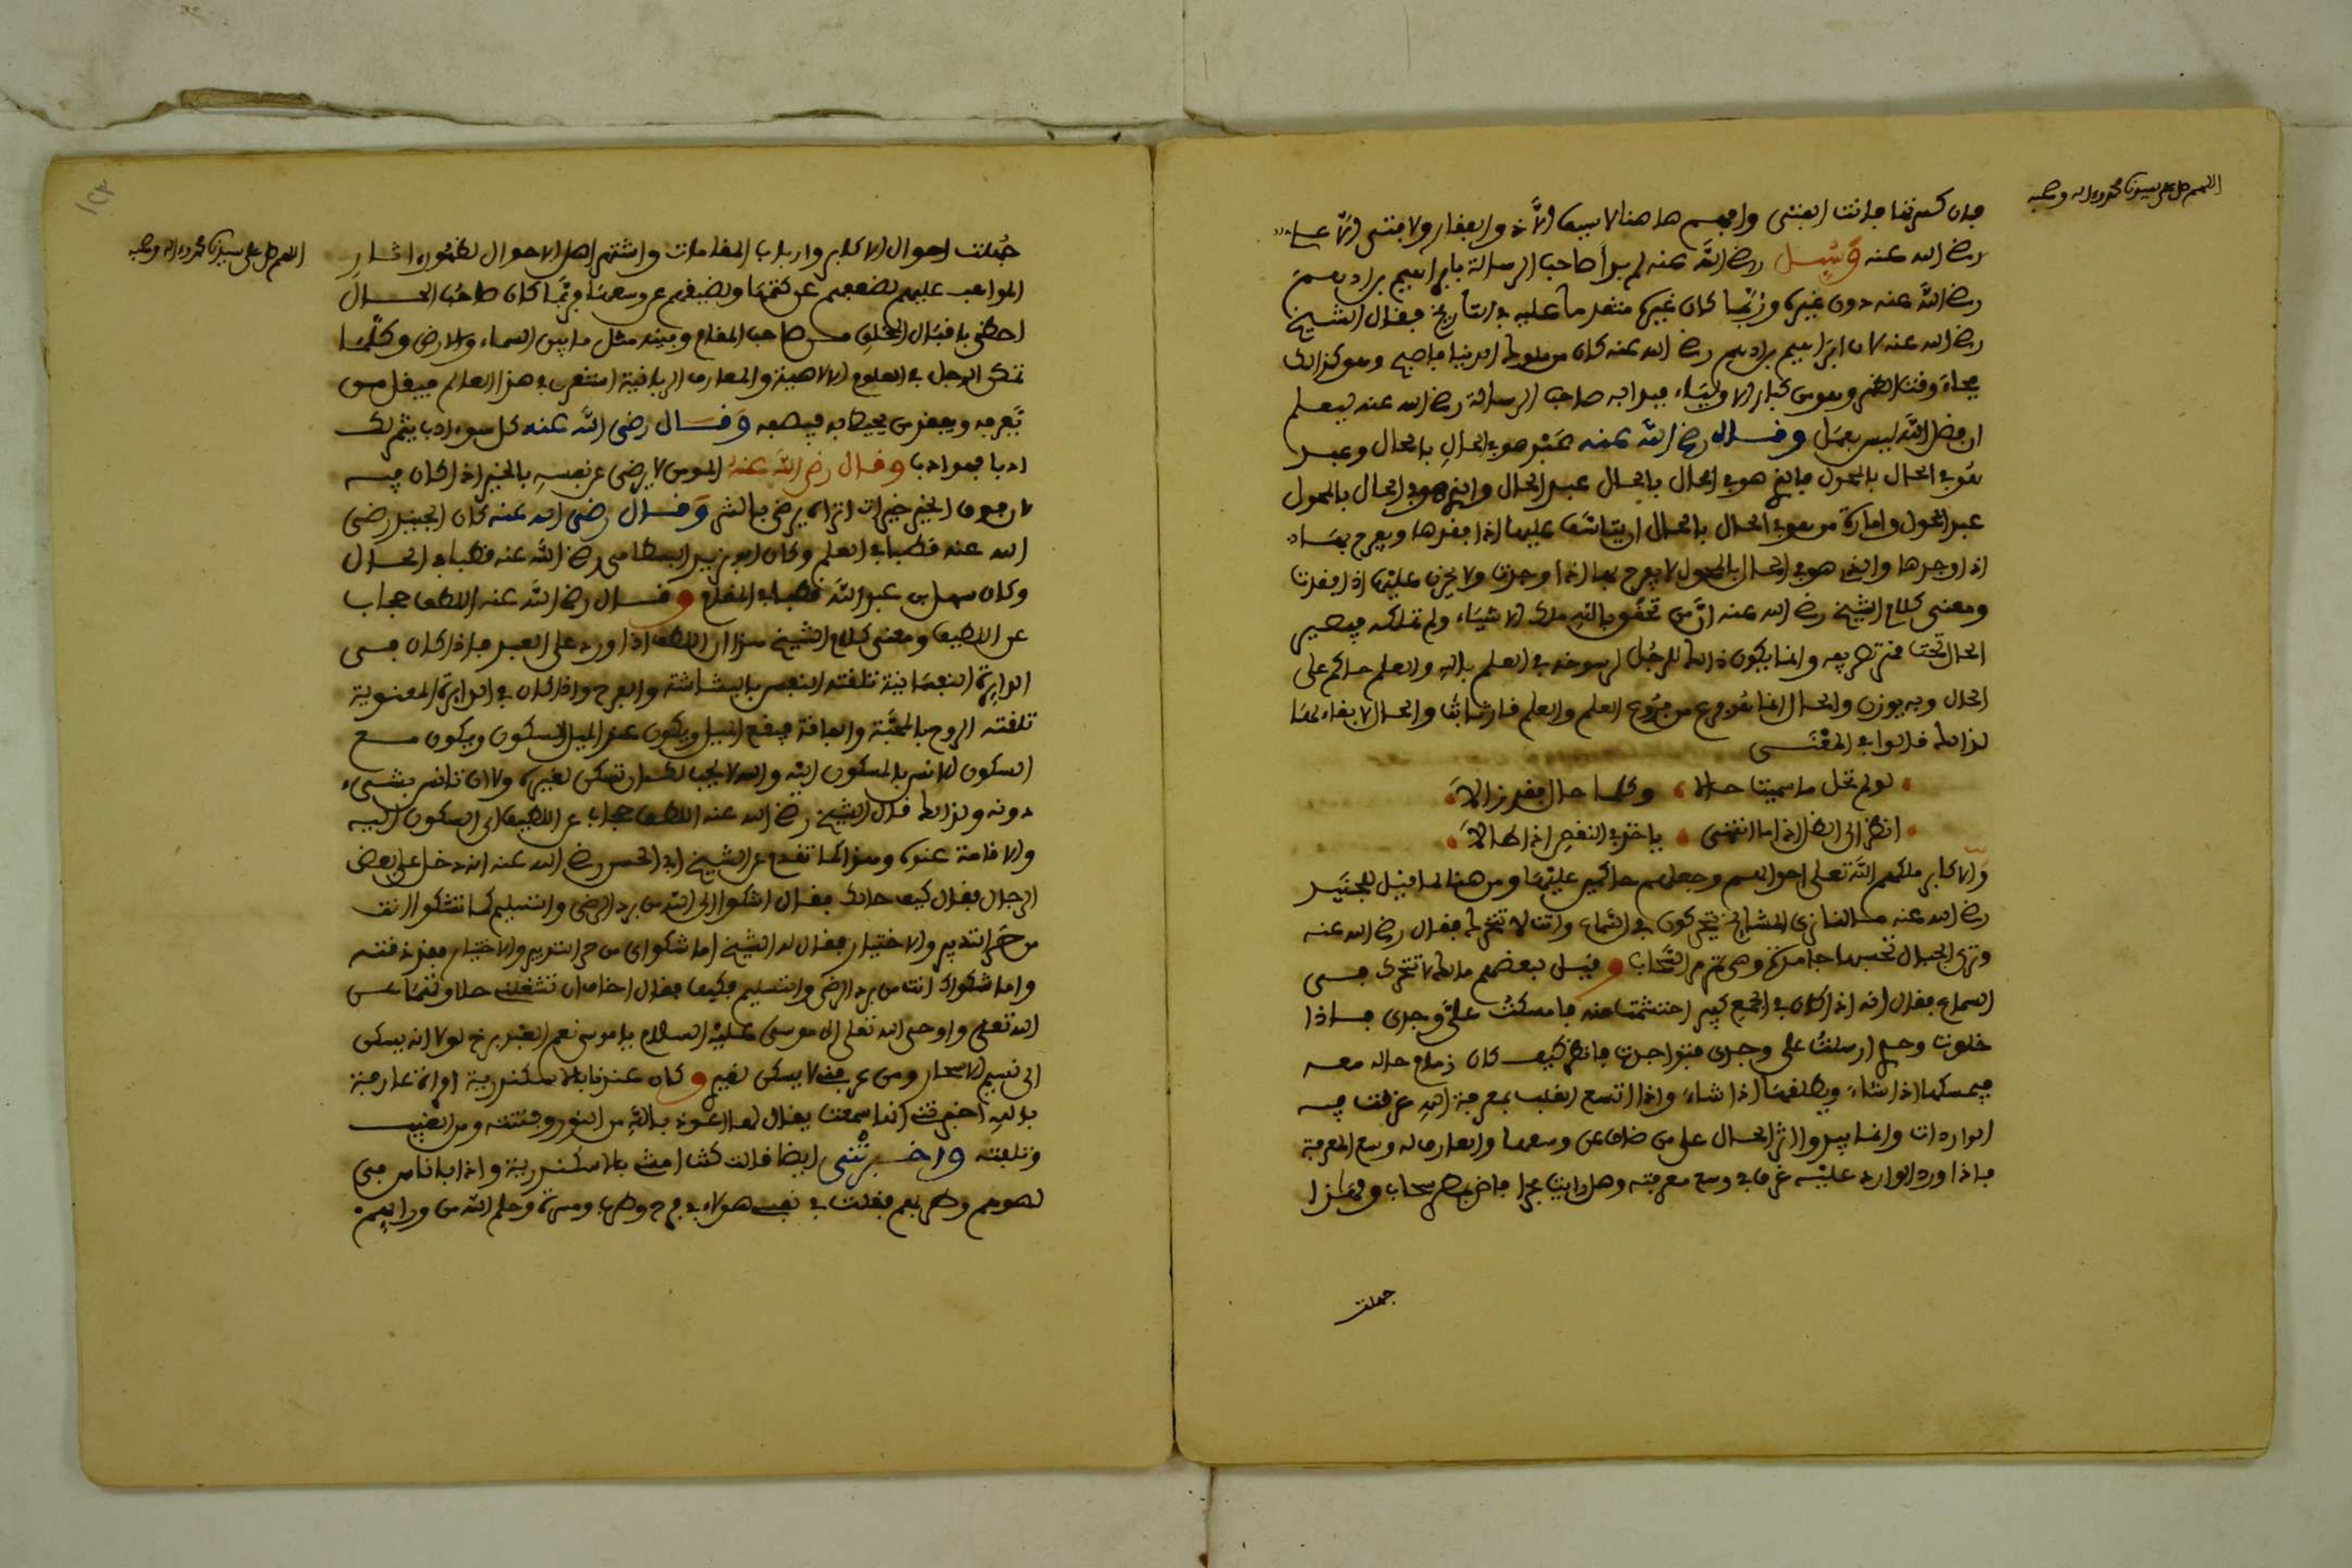 اللهم صل على سيدنا محمد وءاله وصحبه
فان كسرتها فانت الفتى وافهم هاهنا لا سيف الا ذو الفقار ولا فتى الا على
رضي الله عنه وسئل رضي الله عنه لم بدأ صاحب الرسالة بابراهيم بن ادهم
رضي الله عنه دون غيره وربما كان غيره متقدما عليه في التأريخ فقال الشيخ
رضي الله عنه لان ابراهيم بن ادهم رضي الله عنه كان من ملوك الدنيا فاصبح وهو كذالك
فجاء وقت الظهر وهو من كبار الاولياء فبدا به صاحب الرسالة رضي الله عنه ليعلم
ان فضل الله ليس بعمل وقال رضي الله عنه عبد هو في الحال بالحال وعبد
هو في الحال بالمحول فالذي هو في الحال بالحال عبد الحال والذي هو في الحال بالمحول
عبد المحول وامارة من هو في الحال بالحال ان يتاسف عليها اذا فقدها ويفرح بها
اذا وجدها والذي هو في الحال بالمحول لا يفرح بها اذا وجدت ولا يحزن عليها اذا فقدت
ومعنى كلام الشيخ رضي الله عنه ان من تحقق بالله ملك الاشياء ولم تملكه فيصير
الحال تحت قهر تصريفه وانما يكون ذالك للرجل لرسوخه في العلم بالله والعلم حاكم على
الحال وبه يوزن والحال انما هو فرع من فروع العلم والعلم قار ثابت والحال لا بقاء لها
لذالك قالوا في المعنى
لو لم تحل ما سميت حالا وكلما حال فقد زالا
انظر الى الظل اذا ما انتهى ياخذ في النقص اذا طالا
والاكابر ملكهم الله تعلى احوالهم وجعلهم حاكمين عليها ومن هنا لما قيل للجنيد
رضي الله عنه ما لنا نرى المشايخ يتحركون في السماع وانت لا تتحرك فقال رضي الله عنه
وترى الجبال تحسبها جامدة وهي تمر مر السحاب وقيل لبعضهم مالك لا تتحرك في
السماع فقال انه اذا كان في الجمع كبير احتشمت منه فامسكت على وجدي فاذا
خلوت وحدي ارسلت على وجدي فتواجدت فانظر كيف كان زمام حاله معه
فيمسكها اذا شاء ويطلقها اذا شاء واذا اتسع القلب بمعرفة الله غرقت فيه
الواردات وانما يبدو اثر الحال على من ضاق عن وسعها والعارف له وسع المعرفة
فاذا ورد الوارد عليه غرق في وسع معرفته وهل رايت بحرا فاض بمطر سحاب ولهذا
جهلت
اللهم صل على سيدنا محمد وءاله وصحبه
جهلت احوال الاكابر وارباب المقامات واشتهر اهل الاحوال لظهور اثار
المواهب عليهم لضعفهم عن كتمها ولضيقهم عن وسعها وربما كان صاحب الحال
احظى باقبال الخلق من صاحب المقام وبينه مثل ما بين السماء والارض وكلما
تمكن الرجل في العلوم الالاهية والمعارف الربانية استغرق في هذا العالم فيقل من
يعرفه ويفقد من يحيط به فيصفه وقال رضي الله عنه كل سوء ادب يثمر لك
ادبا فهو ادب وقال رضي الله عنه المومن لا يرضى عن نفسه بالخير اذا كان فيه
لان فوق الخير خيرات اتراه يرضى بالشر وقال رضي الله عنه كان الجنيد رضي
الله عنه قطبا في العلم وكان ابو يزيد البسطامي رضي الله عنه قطبا في الحال
وكان سهل بن عبد الله قطبا في المقام وقال رضي الله عنه اللطف حجاب
عن اللطيف ومعنى كلام الشيخ هذا ان اللطف اذا ورد على العبد فاذا كان في
الدايرة النفسانية تلقته النفس بالبشاشة والفرح واذا كان في الدايرة المعنوية
تلقته الروح بالمحبة والفاقة فيقع الميل ويكون عند الميل السكون ويكون مع
السكون الانس بالمسكون اليه والله لا يحب لك ان تسكن لغيره ولا ان تانس بشيء
دونه ولذالك قال الشيخ رضي الله عنه اللطف حجاب عن اللطيف اي السكون اليه
والاقامة عنده وهذا كما تقدم عن الشيخ ابي الحسن رضي الله عنه انه دخل على بعض
الرجال فقال كيف حالك فقال اشكوا الى الله من برد الرضى والتسليم كما تشكوا انت
من حر التدبير والاختيار فقال له الشيخ اما شكواي من حر التدبير والاختيار فقد ذقته
واما شكواك انت من برد الرضى والتسليم فكيف فقال اخاف ان تشغلني حلاوتهما عن
الله تعلى واوحى الله تعلى الى موسى عليه السلام يا موسى نعم العبد برخ لولا انه يسكن
الى نسيم الاسحار ومن عرفني لا يسكن لغيري وكان عندنا بالاسكندرية امراة عارفة
بالله اخبرتني انها سمعت يقال لها اعوذ بالله من النور وفتنته ومن الغيب
وتلفته واخبرتني ايضا قالت كنت امشي بالاسكندرية واذا باناس في
لهوهم وطربهم فقلت في نفسي هولاء في فرح وطرب ومسرة وحلم الله من ورايهم